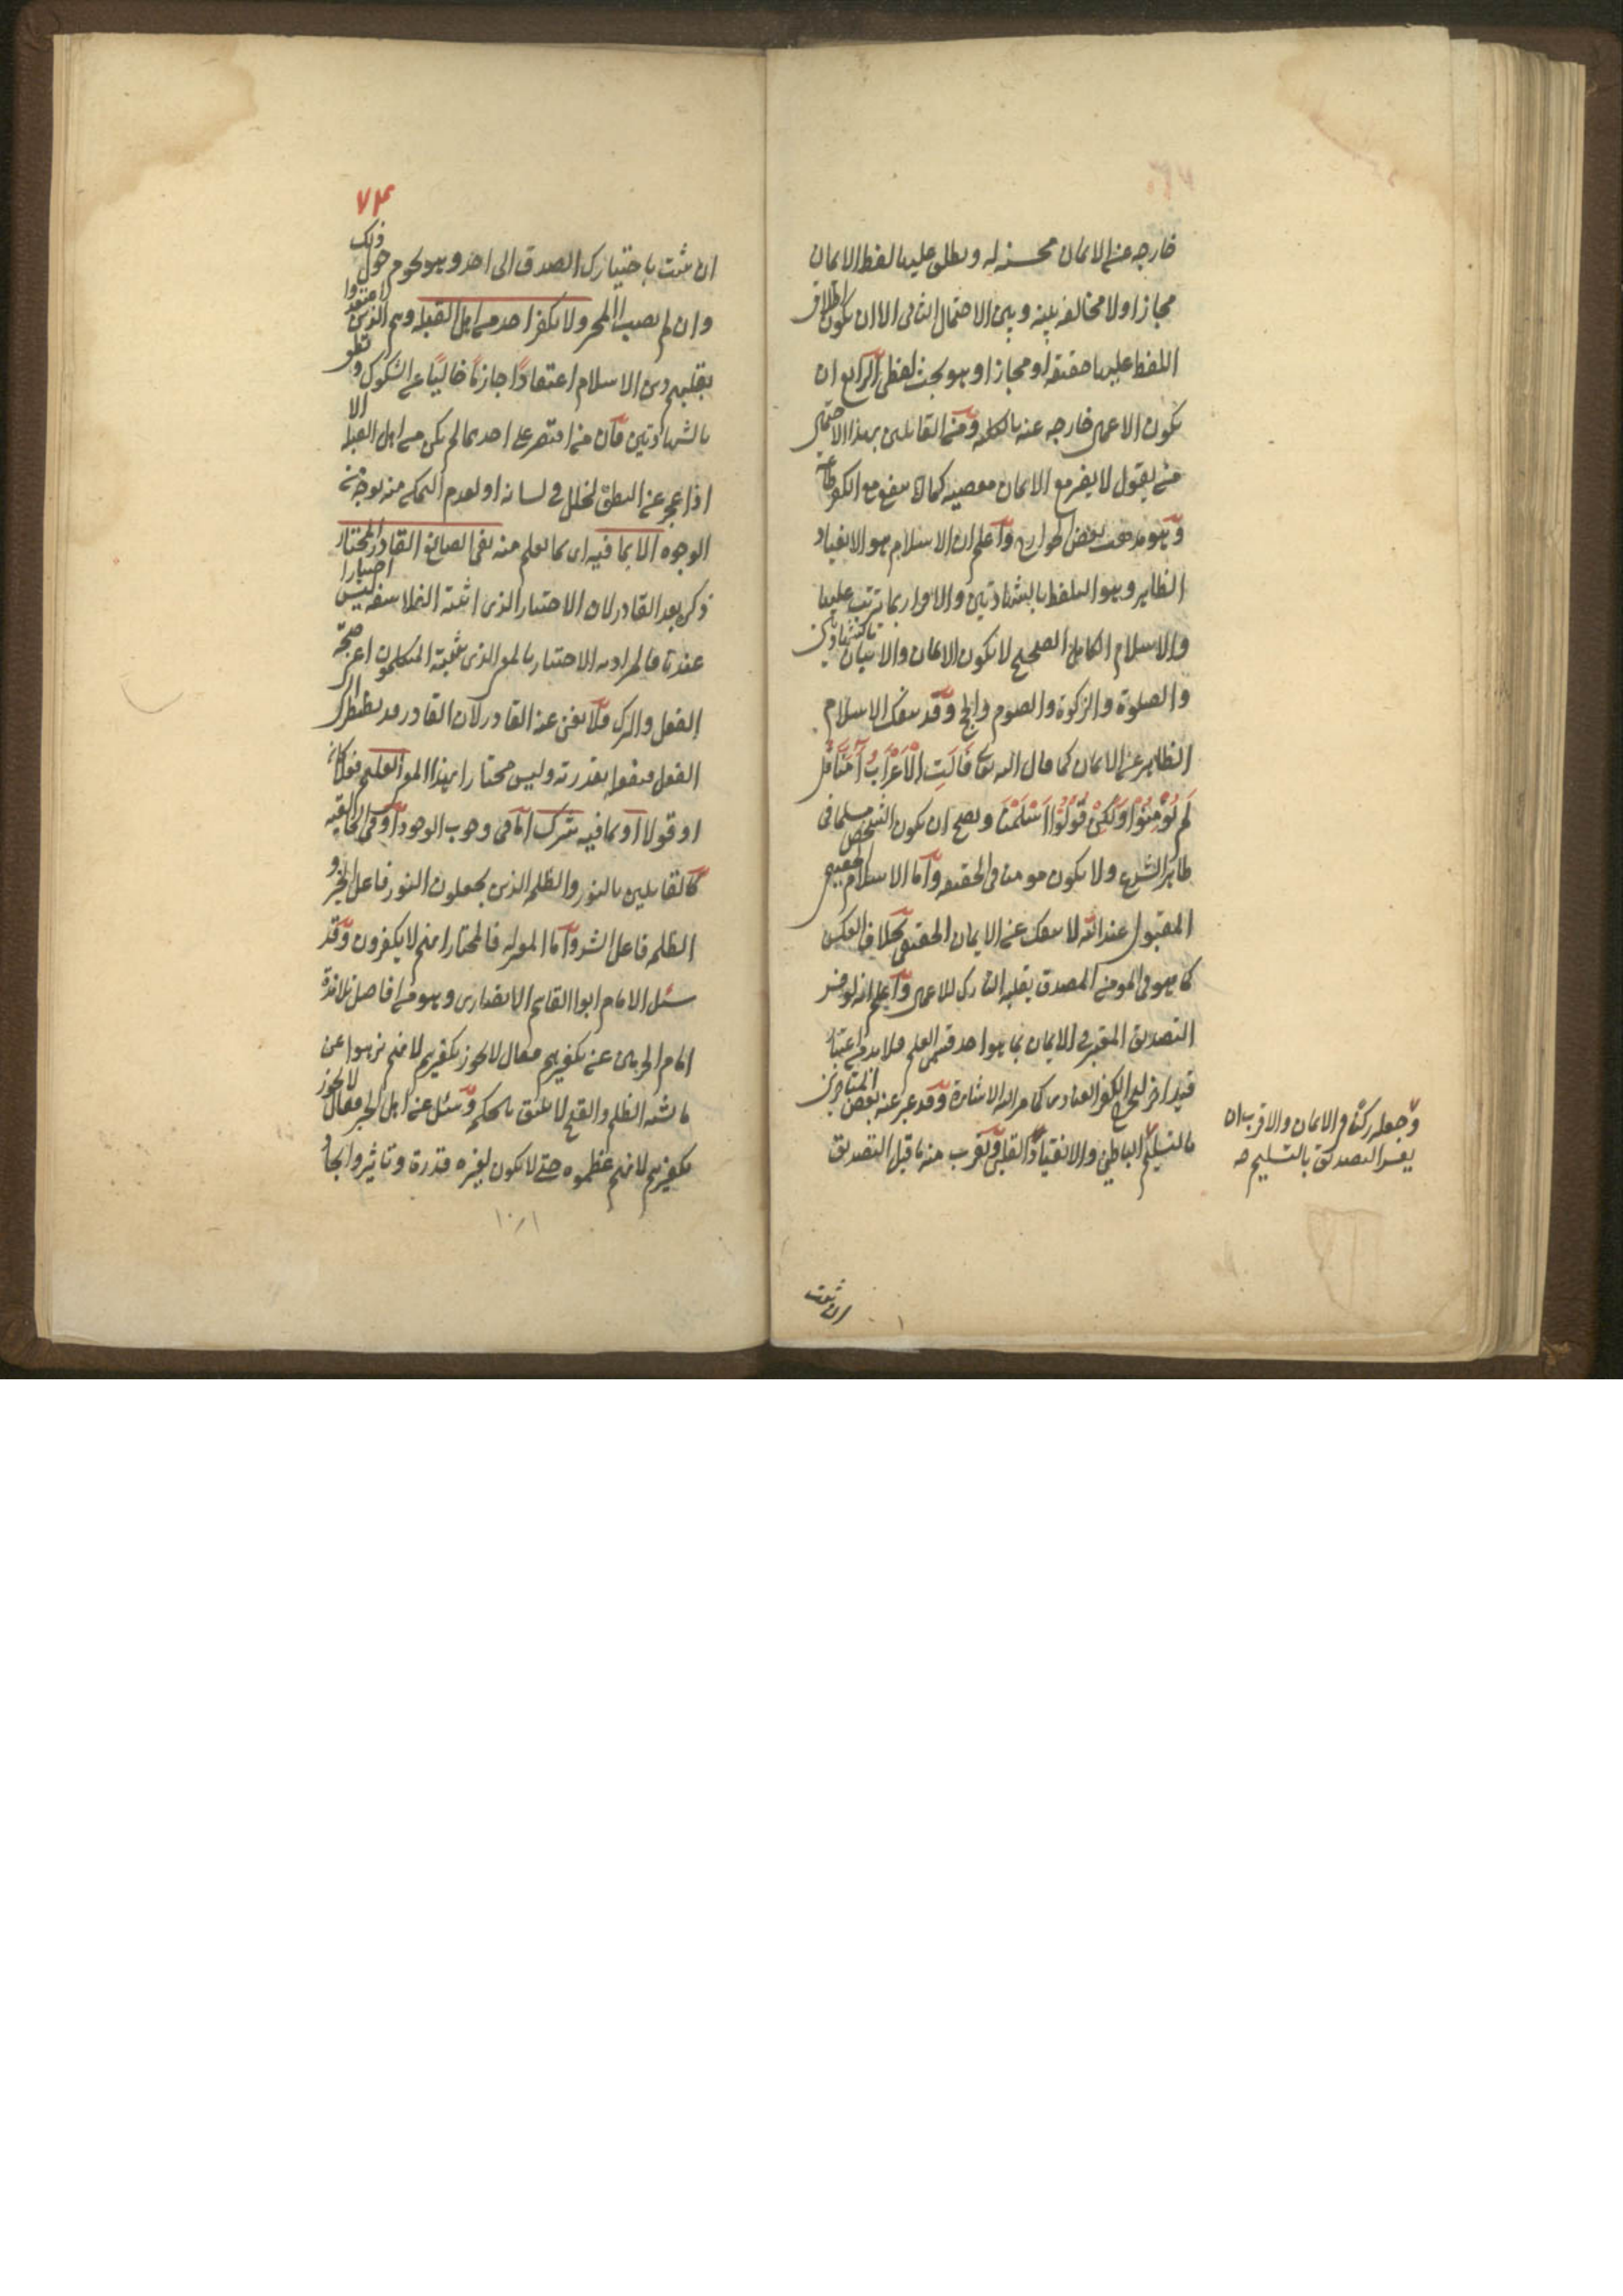 خارجه عن الايمان محسنه له ويطلق عليها لفظ الايمان
مجازا ولا مخالفه بينه وبين الاحتمال الثانى الا ان يكون اطلاق
اللفظ عليها حقيقة او مجازا وهو بحث لفظى الرابع ان
تكون الاعمال خارجه عنه بالكليه ومن القائلين بهذا الاحتمال
من يقول لا يضر مع الايمان معصيه كما لا ينفع مع الكفر طاعة
وهو مذهب بعض الخوارج واعلم ان الاسلام هو الانقياد
الظاهر وهو التلفظ بالشهادتين والاقرار بما يترتب عليها
والاسلام الكامل الصحيح لا يكون الا مع الايمان والاتيان بالشهادتين
والصلوة والزكوة والصوم والحج وقد ينفك الاسلام
الظاهر عن الايمان كما قال الله تعالى قَالَتِ الْاَعْرَابُ آمَنَّا قُلْ
لَمْ تُؤْمِنُوْا وَلَكِنْ قُوْلُوْا اَسْلَمْنَا ويصح ان يكون الشخص مسلما فى
ظاهر الشرع ولا يكون مومنا فى الحقيقه واما الاسلام الحقيقى
المقبول عند الله لا ينفك عن الايمان الحقيقى بخلاف العكس
كما هو فى المومن المصدق بقلبه التارك للاعمال واعلم انه لو فسر
التصديق المعتبر فى الايمان بما هو احد قسمى العلم فلا بد من اعتبار
قيد اخر ليخرج الكفر العنادى كما مر اليه الاشارة وقد عبر عنه بعض المتاخرين
بالتسليم الباطنى والانقياد القلبى ويقرب منه ما قيل التصديق
وجعله ركنا من الايمان والاقرب ان
يفسر التصديق بالتسليم صه
ان ثبت
٧٤
ان تنسب باختيارك الصدق الى احد وهو يحوم حول ذلك
وان لم يصب المحز ولا يكفر احد من اهل القبله وهم الذين اعتقدوا
بقلبهم دين الاسلام اعتقادًا جازمًا خاليًا عن الشكوك ونطقوا
بالشهادتين فان من اقتصر على احدهما لم يكن من اهل القبله الا
اذا عجز عن النطق لخلل فى لسانه او لعدم التمكن منه بوجه من
الوجوه الا بما فيه اى بما يعلم منه نفى الصانع القادر المختار
ذكر بعد القادر لان الاختيار الذى اثبته الفلاسفه ليس اختيارا
عندنا فالمراد به الاختيار بالمعنى الذى يثبته المتكلمون اعنى صحة
الفعل والترك فلا يغنى عنه القادر لان القادر قد يضطر الى
الفعل فيفعل بقدرته وليس مختارا بهذا المعنى العليم فعلا كان
او قولا او بما فيه شرك اما فى وجوب الوجود او فى الخالقيه
كالقائلين بالنور والظلمه الذين يجعلون النور فاعل الخير و
الظلمه فاعل الشر واما المعتزله فالمختار انهم لا يكفرون وقد
سئل الامام ابو القاسم الانصارى وهو من افاضل تلامذة
امام الحرمين عن تكفيرهم فقال لا يجوز تكفيرهم لانهم نزهوا عن
ما يشبه الظلم والقبح لا يليق بالحكمه وسئل عن اهل الجبر فقال لا يجوز
تكفيرهم لانهم عظموه حتى لا يكون لغيره قدرة وتاثير وايجاد